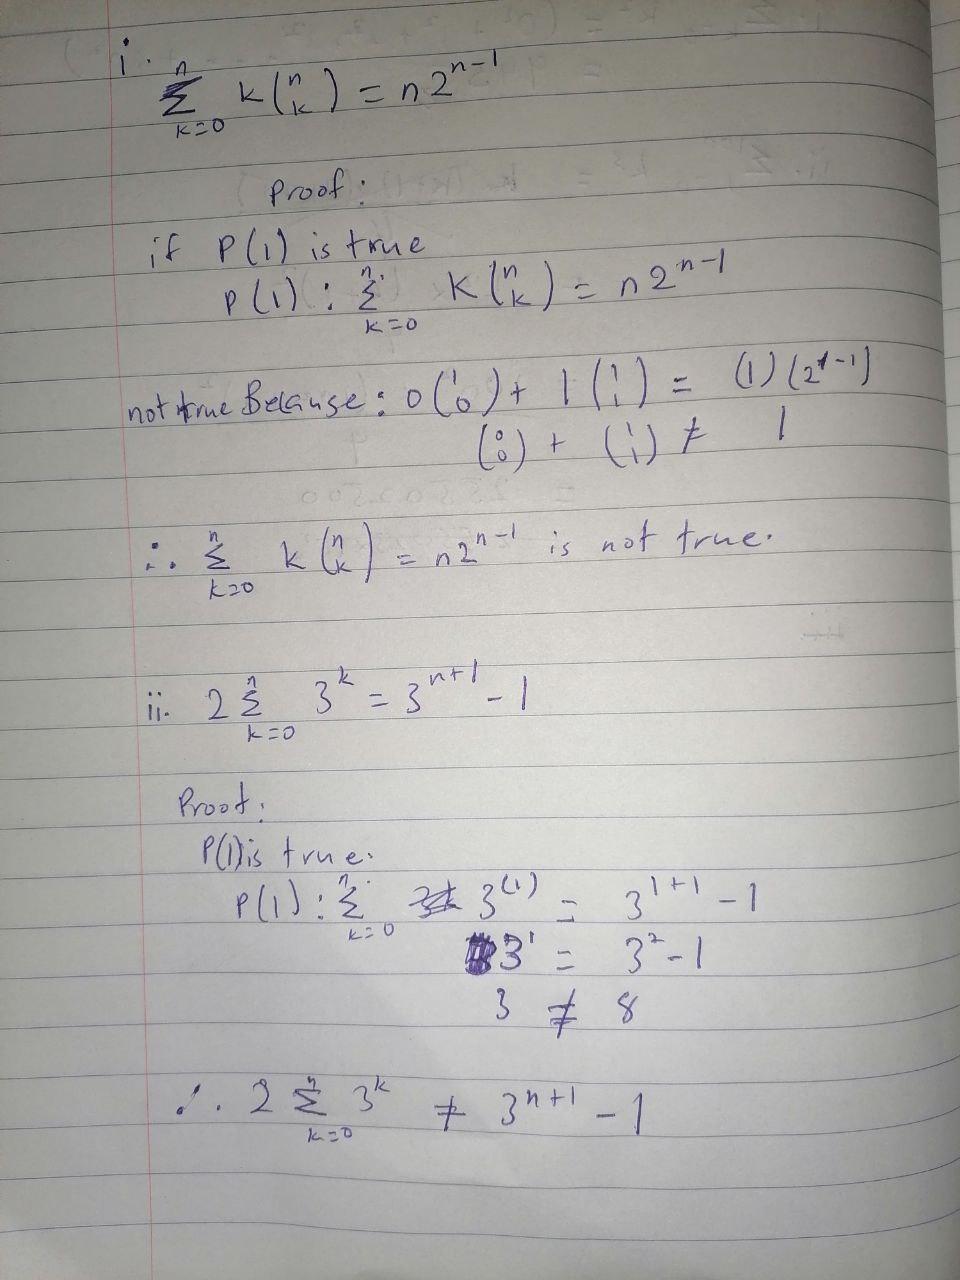 i. \sum_{k=0}^{n} k \binom{n}{k} = n2^{n-1}
Proof:
if P(1) is true
P(1): \sum_{k=0}^{n} k \binom{n}{k} = n2^{n-1}
not true Because: 0 \binom{1}{0} + 1 \binom{1}{1} = (1)(2^{1-1})
\binom{0}{0} + \binom{1}{1} ≠ 1
∴ \sum_{k=0}^{n} k \binom{n}{k} = n2^{n-1} is not true.
ii. 2 \sum_{k=0}^{n} 3^{k} = 3^{n+1} - 1
Proof:
P(1) is true.
P(1): \sum_{k=0}^{n} 3^{(1)} = 3^{1+1} - 1
3^{1} = 3^{2} - 1
3 ≠ 8
∴ 2 \sum_{k=0}^{n} 3^{k} ≠ 3^{n+1} - 1